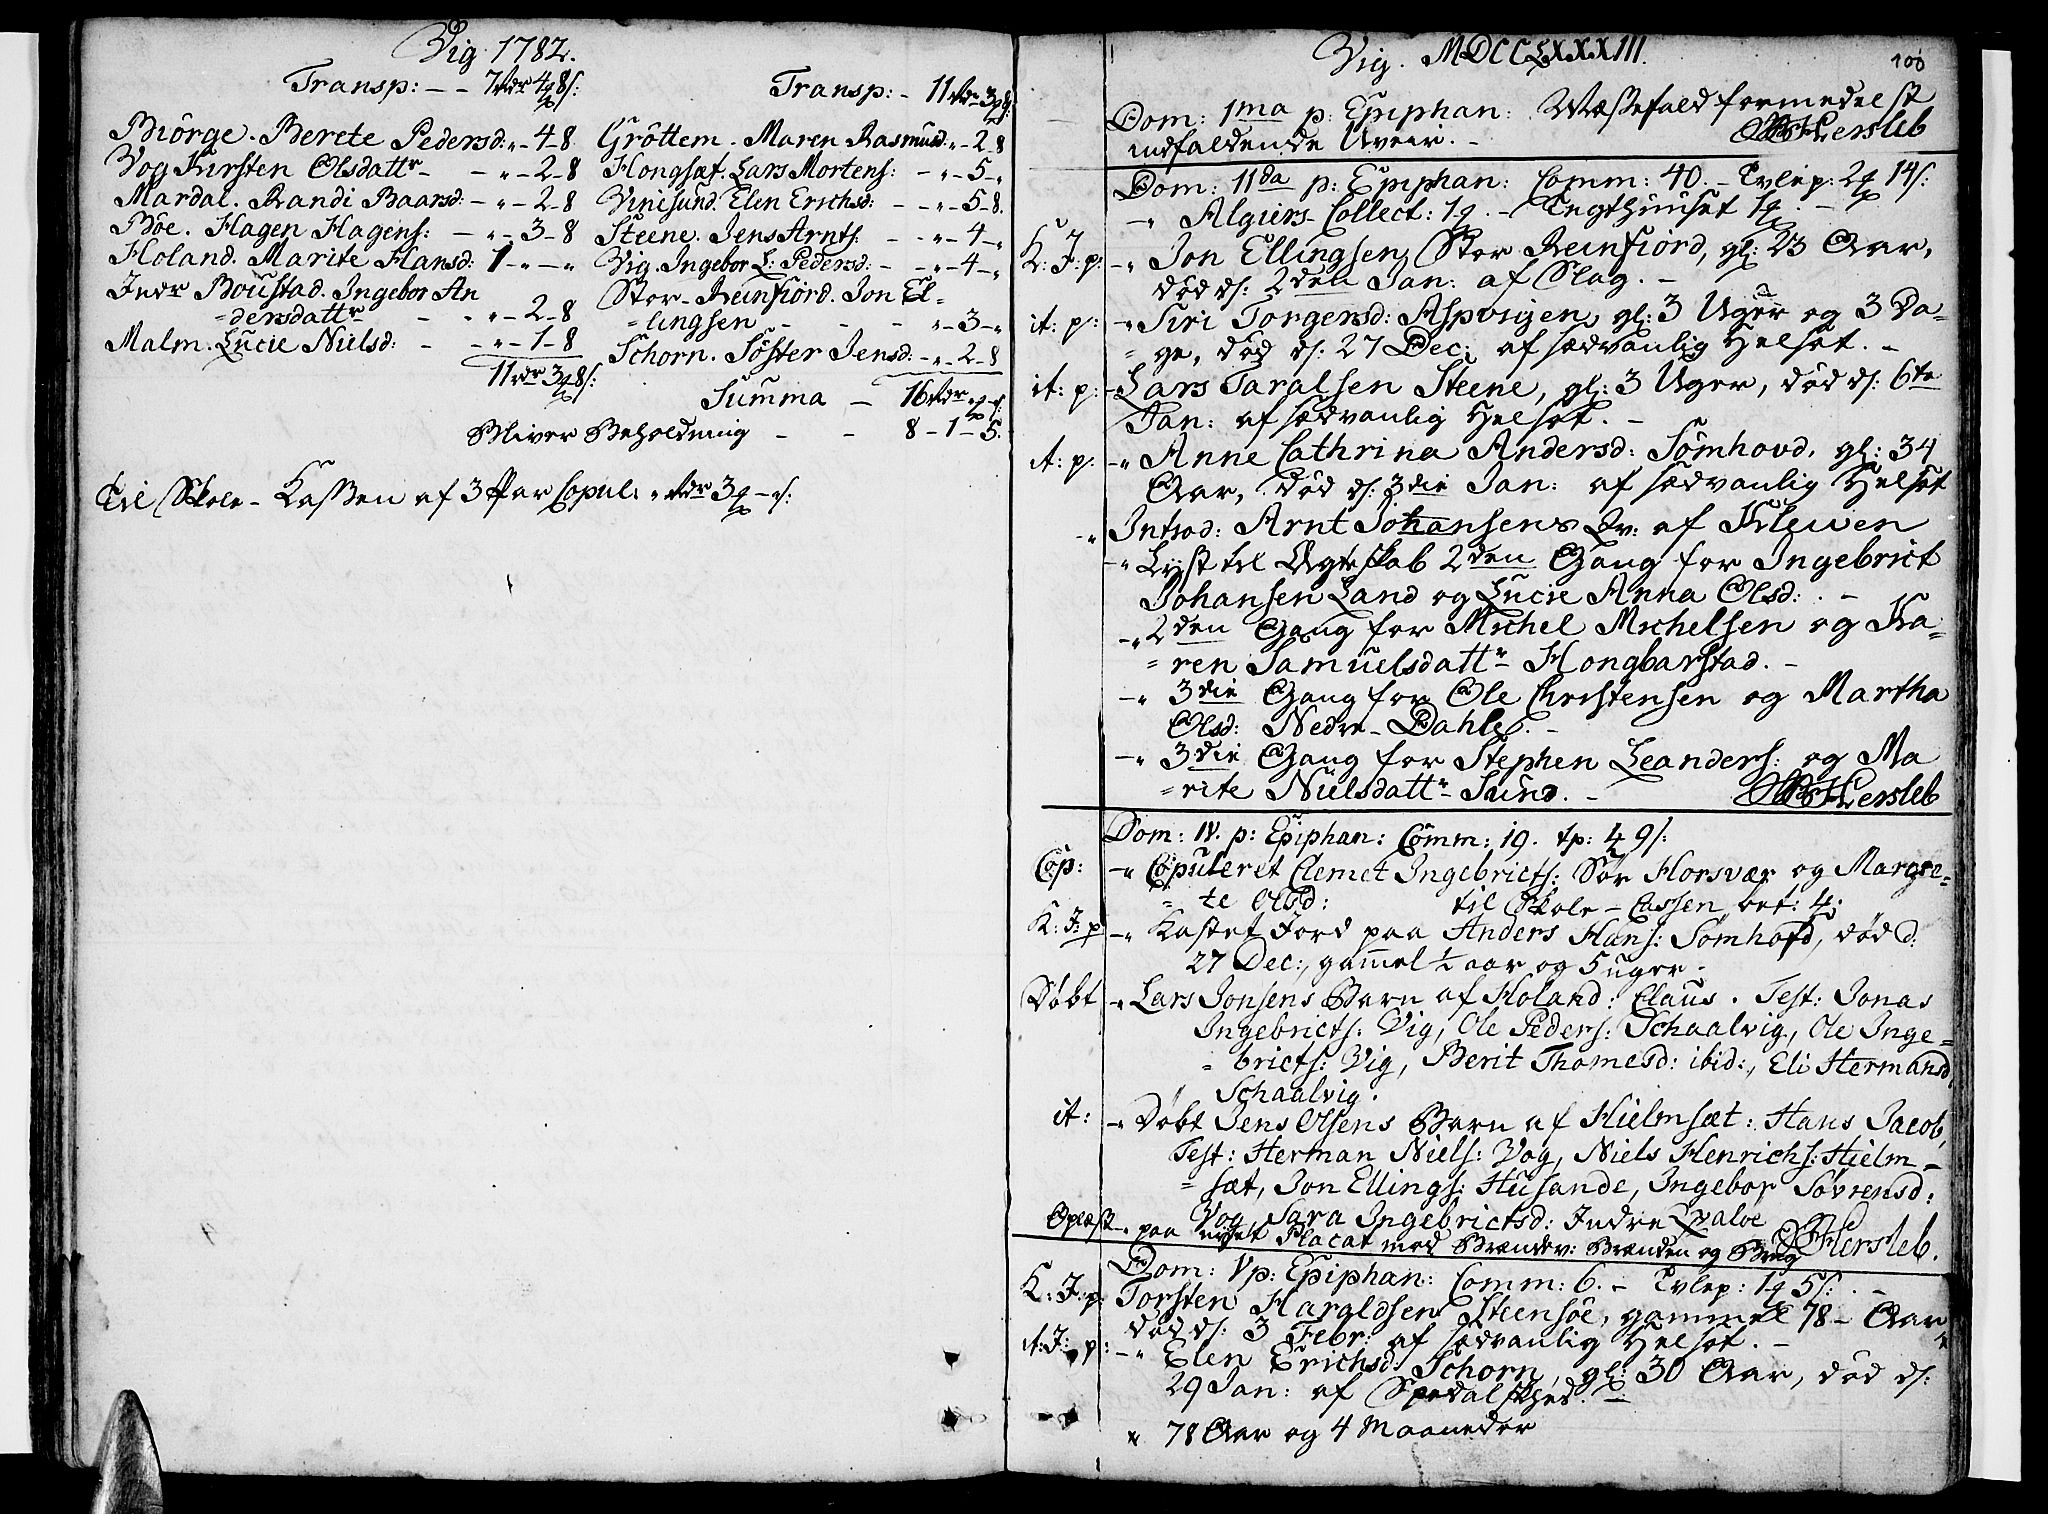 Vig 1782.
Transp: - - 7 rdr 4 8 s:
Biörge. Berete Pedersd: „ - 4 - 8
Vog Kirsten Olsdattr - - „ - 2 - 8
Mardal. Randi Baarsd: - „ - 2 - 8
Böe. Hagen Hagens: - „ - 3 - 8
Holand. Marite Hansd: 1 - „ - „
Indr Boustad. Ingebor An
=dersdattr - - „ - 2 - 8
Malm. Lucie Nielsd: - - „ - 1 - 8
11 rdr 3 8 s:
Transp: - 11 rdr 3 8 s:
Gröttem. Maren Rasmusd „ - 2 - 8
Hongsæt. Lars Mortens: - „ - 5 - „
Vinesund. Elen Erichsd: - - „ - 5 - 8.
Steene. Jens Arnts: - - „ - 4 - „
Vig. Ingebor L: Pedersd: - - „ - 4 - „
Stor-Reinfiord. Jon El=
=lingsen - - - „ - 3 - „
Schorn. Söster Jensd: - „ - 2 - 8
Summa - 16 rdr „ „ s:
Bliver Beholdning - - 8 - 1 - 5.
Til Skole-Kassen af 3 Par Copul: „ rdr 3 - s:
Vig. MDCCLXXXIII.
100
Dom: 1ma p: Epiphan: Messefald formedelst
indfaldende Uveir. - Hersleb
Dom: 11da p: Epiphan: Comm: 40. - Tvlep: 2 14 s:
-„ Algiers Collect: 1 - Tugthuuset 1 -
K: J: p: -„ Jon Ellingsen Stor Reinfiord, gl: 23 Aar,
död d: 2den Jan: af Slag. -
it: p: -„ Siri Torgersd: Aspvigen, gl: 3 Uger og 3 Da=
=ge, död d: 27 Dec: af sædvanlig Helsot. -
it: p: -„ Lars Taralsen Steene, gl: 3 Uger, död d: 6te
Jan: af sædvanlig Helsot. -
it: p: -„ Anne Cathrina Andersd: Sömhovd, gl: 34
Aar, död d: 3die Jan: af sædvanlig Helsot
-„ Introd: Arnt Johansens Qv: af Klewen
-„ Lyst til Ægteskab 2den Gang for Ingebrict
Johansen Land og Lucie Anna Olsd: . -
-„ 2den Gang for Michel Michelsen og Ka=
=ren Samuelsdattr Hongbarstad. -
-„ 3die Gang for Ole Christensen og Martha
Olsd: Nedre-Dahle. -
-„ 3die Gang for Stephen Leanders: og Ma
=rite Nielsdattr Sund. - Hersleb
Dom: IV. p: Epiphan: Comm: 19. tp: 4 9 s:
Cop: -„ Copuleret Clemet Ingebricts: Sör Horsvær og Margre=
=te Olsd: til Skole-Cassen bet: 4
K: J: p -„ Kastet Jord paa Anders Hans: Sömhofd, död d:
27 Dec:, gammel 1/2 aar og 5 uger.
Döbt -„ Lars Jonsens Barn af Holand: Claus. Test: Jonas
Ingebricts: Vig, Ole Peders: Schaalvig, Ole Inge=
=bricts: Vig, Berit Thomesd: ibid:, Eli Hermansd
Schaalvig.
it: -„ Döbt Jens Olsens Barn af Hielmsæt: Hans Jacob,
Test: Herman Niels: Vog, Niels Henrichs: Hielm=
=sæt, Jon Ellings: Husande, Ingebor Sövrensd:
Vog, Sara Ingebrictsd: Indre Qvaløe
Oplæst -„ paa nyet Placat mod Brændev: Brænden og Brug Hersleb.
Dom: V p: Epiphan: Comm: 6. - Tvlep: 1 5 s: . -
K: J: p: Torsten Haraldsen Steensöe, gammel 78 - Aar
död d: 3 Febr: af sædvanlig Helsot. - x
it: J: p: -„ Elen Erichsd: Schorn, gl: 30 Aar, död d:
29 Jan: af Spedalskhed. -
x 78 Aar og 4 Maaneder